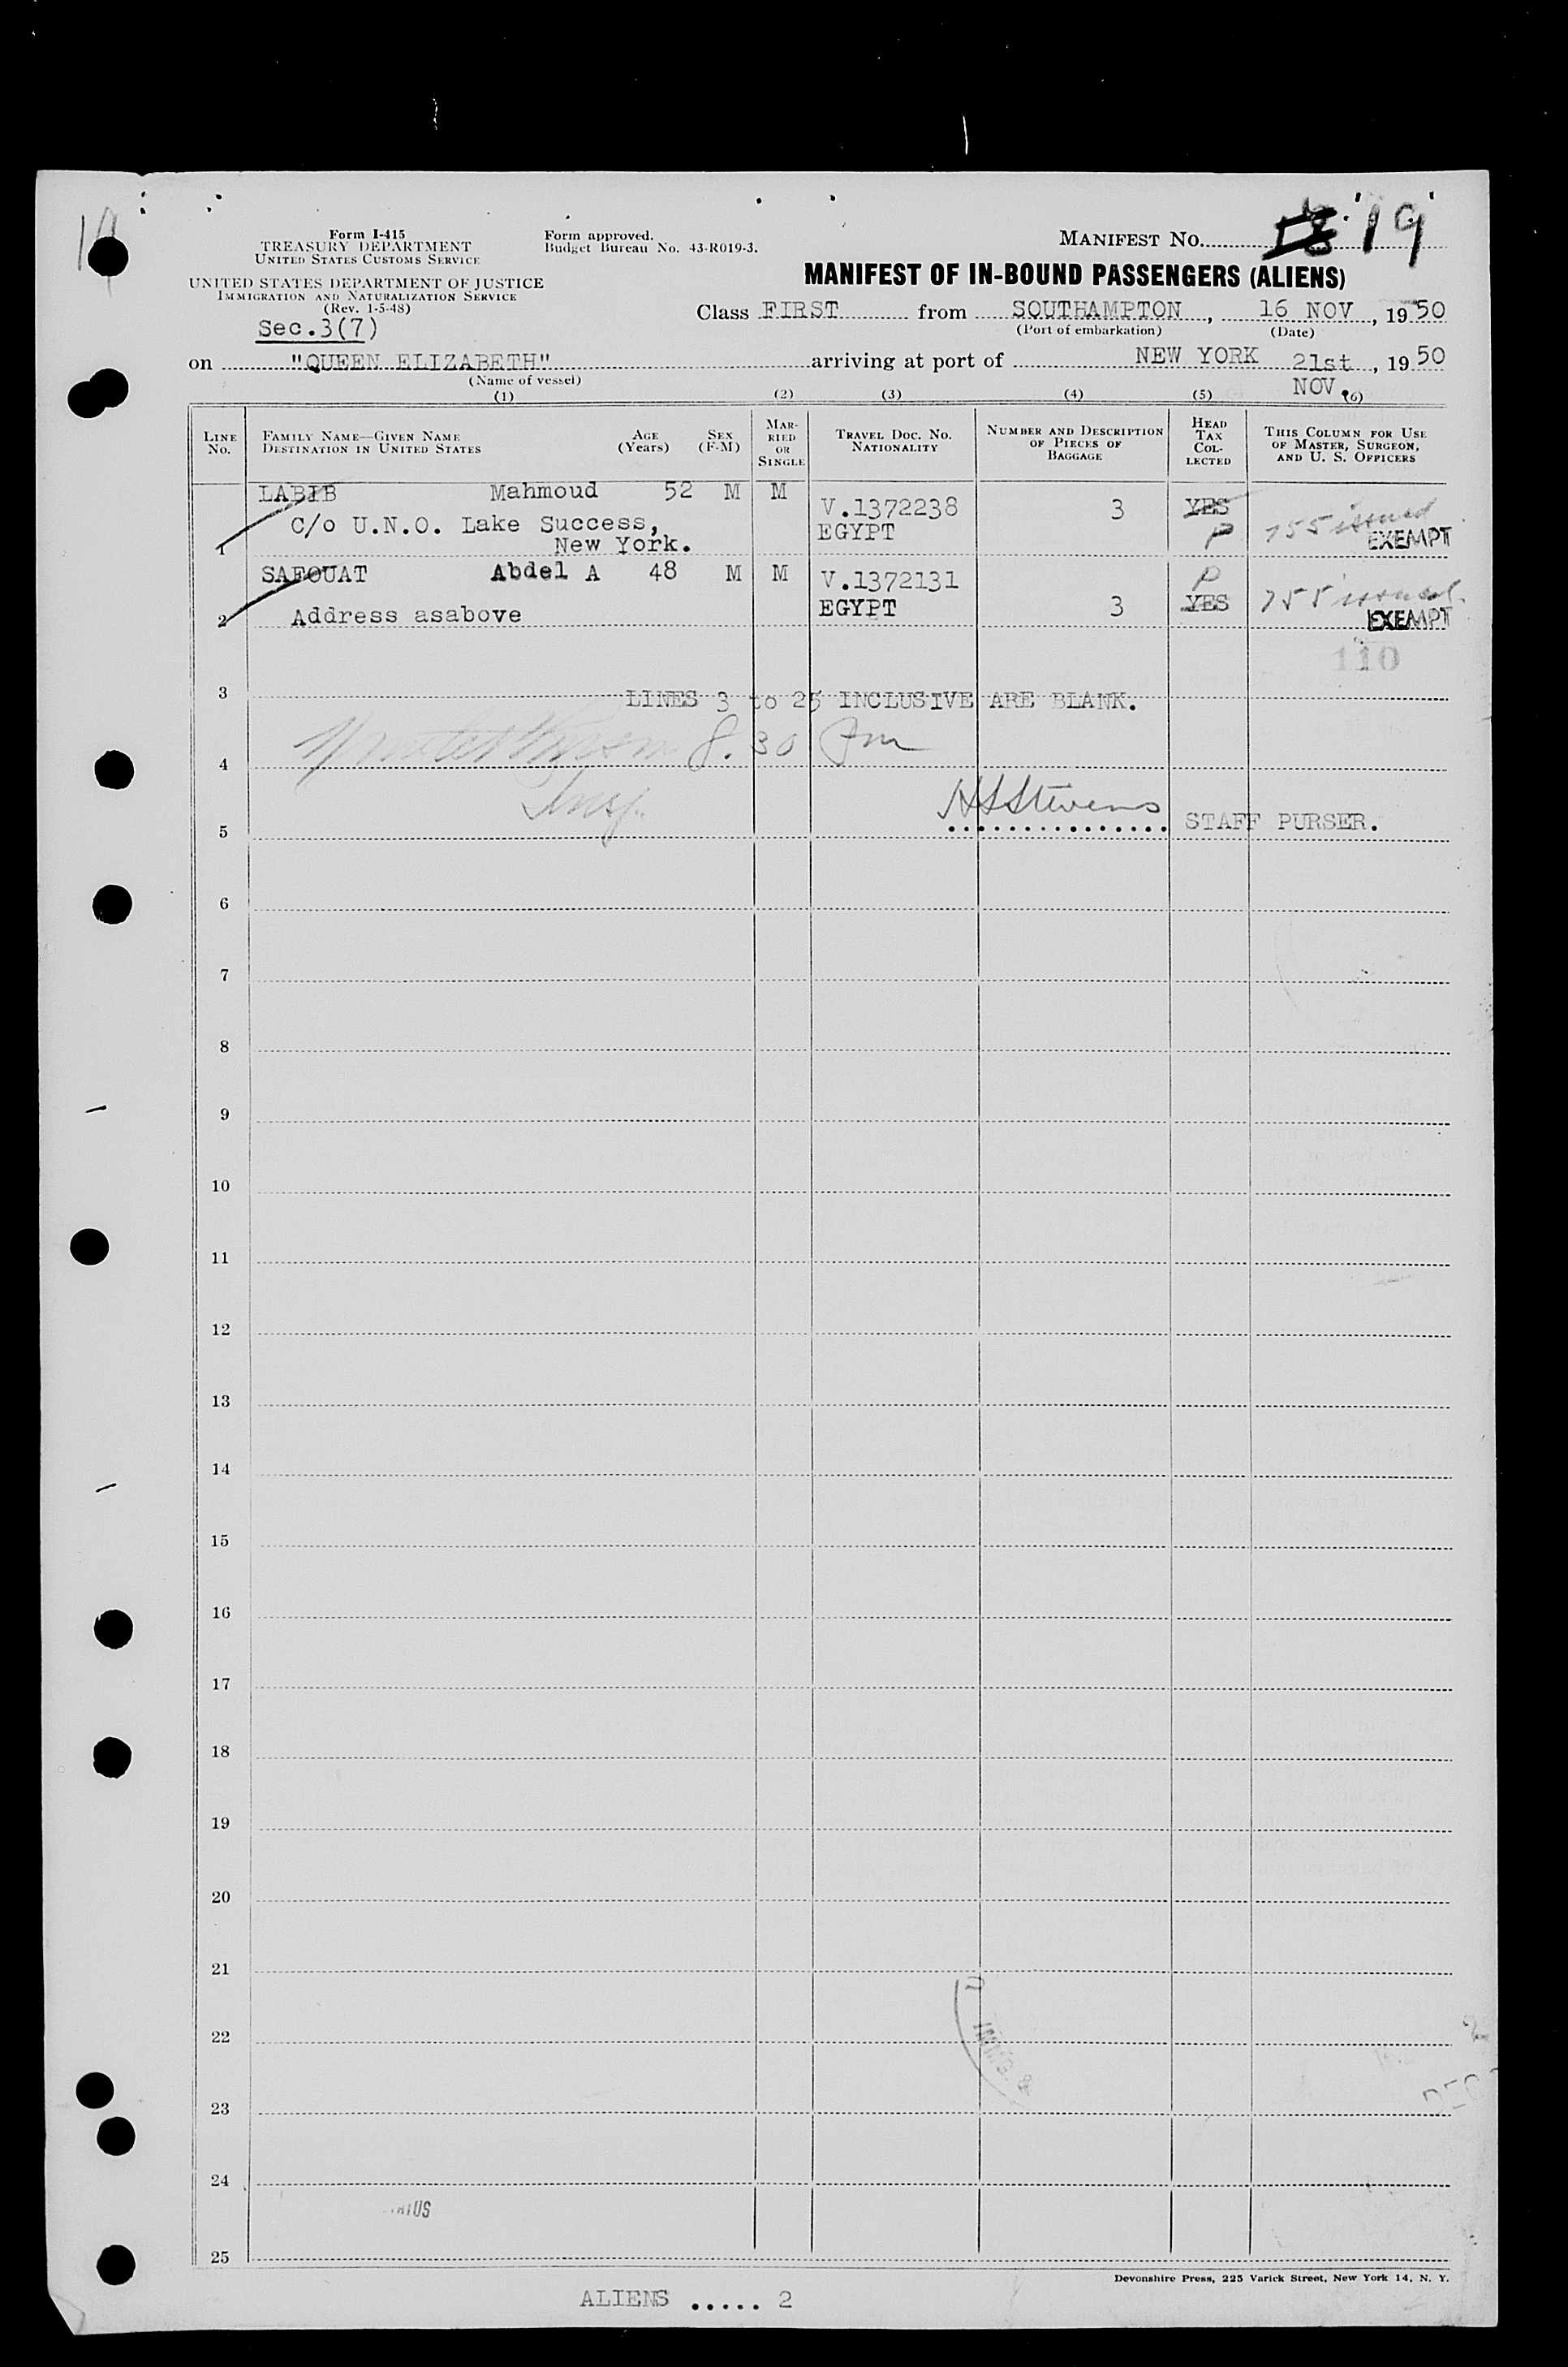 19
Form I-415
TREASURY DEPARTMENT
UNITED STATES CUSTOMS SERVICE
UNITED STATES DEPARTMENT OF JUSTICE
IMMIGRATION AND NATURALIZATION SERVICE
(Rev. 1-5-48)
Sec.3(7)
Form approved.
Budget Bureau No. 43-R019-3.
MANIFEST NO. 19
MANIFEST OF IN-BOUND PASSENGERS (ALIENS)
Class FIRST from SOUTHAMPTON, 16 NOV, 1950
(Port of embarkation) (Date)
on "QUEEN ELIZABETH" arriving at port of NEW YORK 21st NOV., 1950
(Name of vessel)
(1) (2) (3) (4) (5) (6)
LINE No.
FAMILY NAME—GIVEN NAME
DESTINATION IN UNITED STATES
AGE (Years)
SEX (F-M)
MARRIED OR SINGLE
TRAVEL DOC. NO.
NATIONALITY
NUMBER AND DESCRIPTION OF PIECES OF BAGGAGE
HEAD TAX COLLECTED
THIS COLUMN FOR USE OF MASTER, SURGEON, AND U. S. OFFICERS
LABIB Mahmoud 52 M M V.1372238 3 YES
C/o U.N.O. Lake Success, EGYPT P 755 issued
1 New York. EXEMPT
SAFOUAT Abdel A 48 M M V.1372131 P
2 Address asabove EGYPT 3 YES 755 issued.
EXEMPT
110
3 LINES 3 to 25 INCLUSIVE ARE BLANK.
4 8.30 Am
Insp.
5 HSStevens STAFF PURSER.
6
7
8
9
10
11
12
13
14
15
16
17
18
19
20
21
22
23
24
25
Devonshire Press, 225 Varick Street, New York 14, N. Y.
ALIENS ..... 2